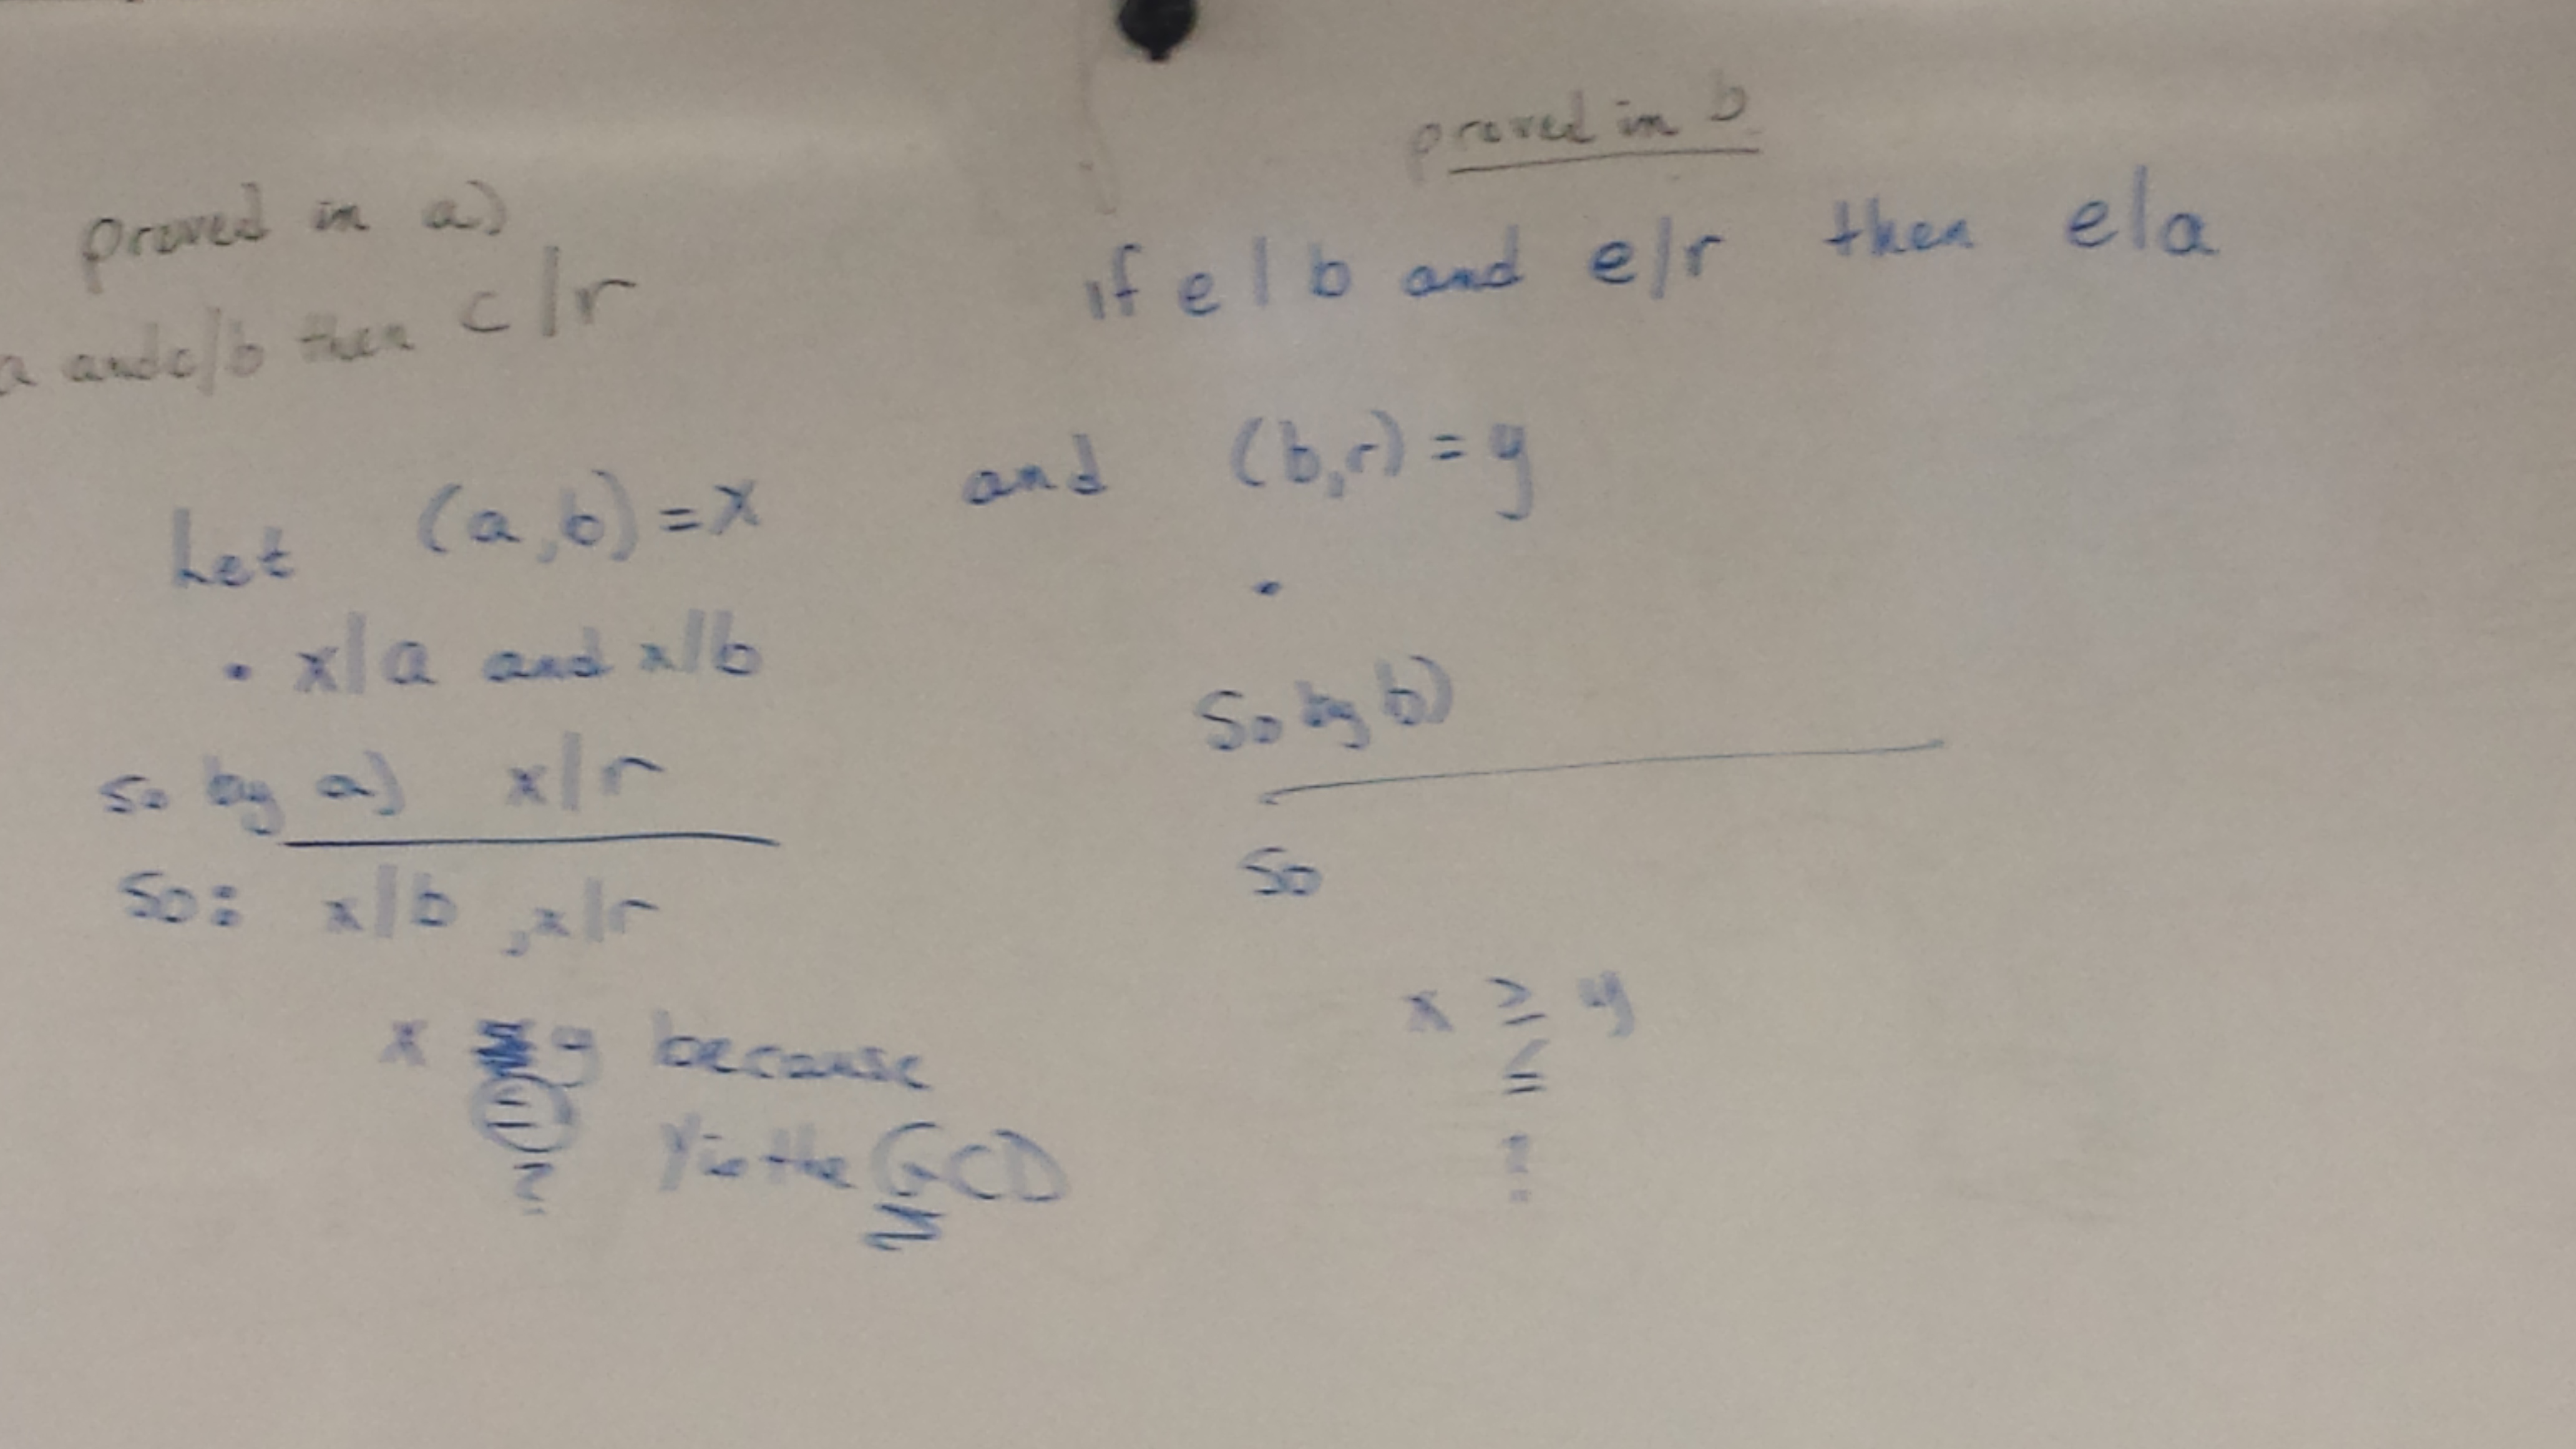 proved in a)
a and c/b then c|r
proved in b
if e | b and e/r then e|a
Let (a,b) = x and (b,r) = y
• x|a and x|b
so by a) x|r
So: x|b , x|r
x y because
=
?
y is the GCD
•
So by b)
So
x ≥ y
≤
=
?